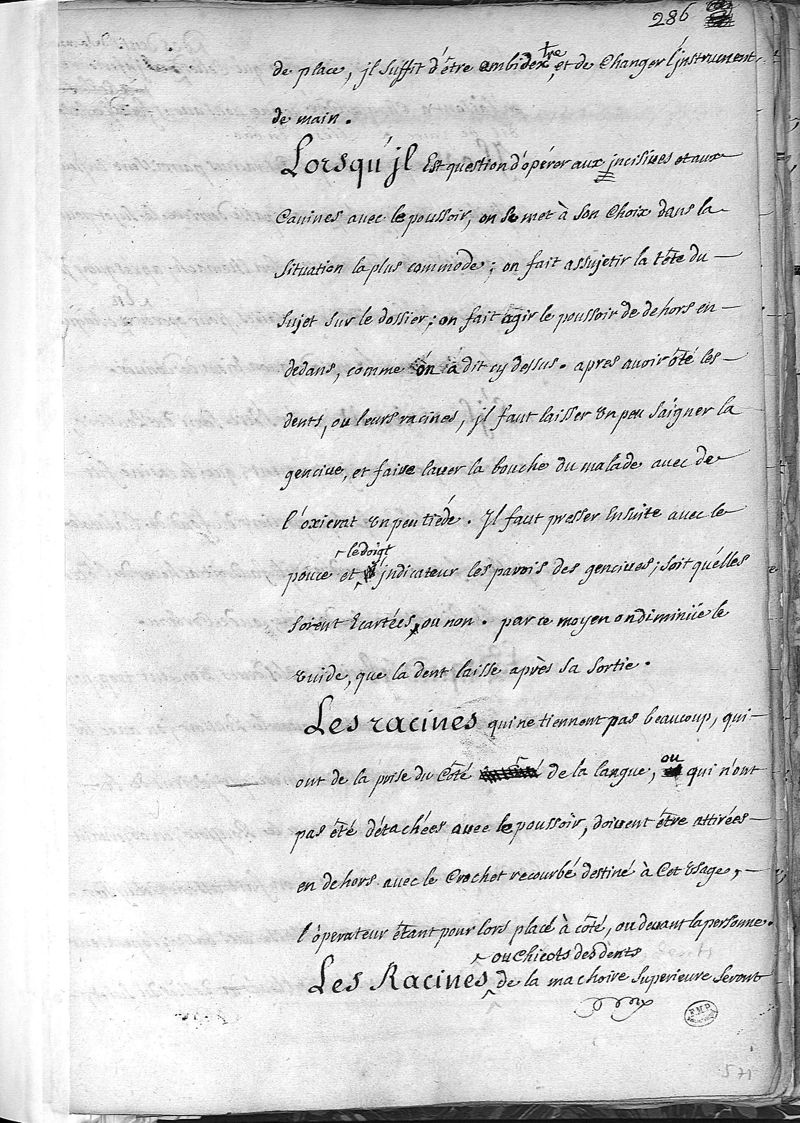 286
de place, jl suffit d'être ambidextre, et de Changer l'jnstrument
de main.
Lorsqu'jl Est question d'opérer aux jncisiues et aux
Canines avec le poussoir, on se met à son Choix dans la
situation la plus commode; on fait assujetir la tête du
sujet sur le dossier; on fait agir le poussoir de dehors en
dedans, comme on a dit cy dessus. apres avoir ôté les
dents, ou leurs racines, jl faut laisser un peu saigner la
genciue, et faire lauer la bouche du malade avec de
l'oxicrat un peu tiéde. Il faut presser Ensuite avec le
pouce et le doigt jndicateur les parois des genciues; soit qu'elles
soient Ecartées, ou non. par ce moyen on diminüe le
vuide, que la dent laisse après sa sortie.
Les racines qui ne tiennent pas beaucoup, qui
ont de la prise du Côté de la langue, ou qui n'ont
pas été détachées avec le poussoir, doiuent être attirées
en dehors avec le Crochet recourbé destiné à Cet usage,
l'opérateur étant pour lors placé à côté, ou deuant la personne.
Les Racines ou Chicots des dents de la machoire superieure seront
571